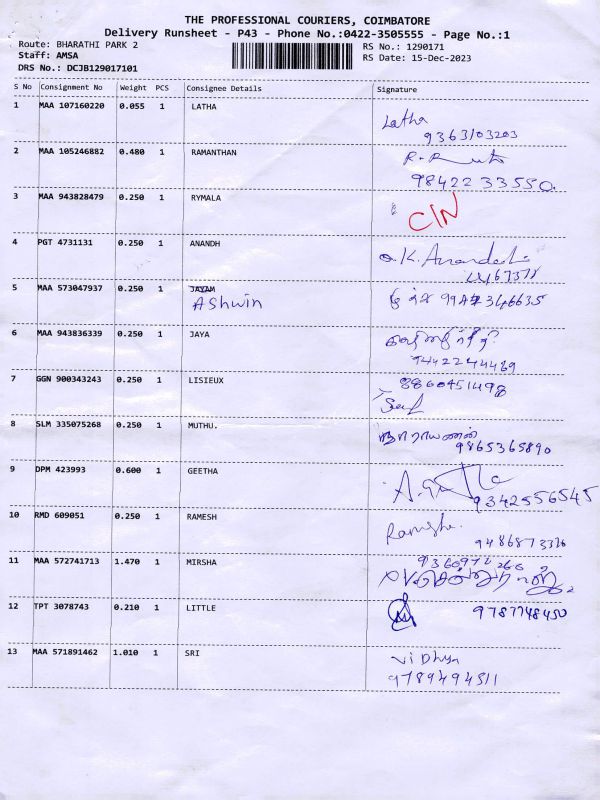 THE PROFESSIONAL COURIERS, COIMBATORE
Delivery Runsheet - P43 - Phone No.:0422-3505555 - Page No.:1
Route: BHARATHI PARK 2 RS No.: 1290171
Staff: AMSA RS Date: 15-Dec-2023
DRS No.: DCJB129017101
S No Consignment No Weight PCS Consignee Details Signature
1 MAA 107160220 0.055 1 LATHA Latha
9363103203
2 MAA 105246882 0.480 1 RAMANTHAN
98422 33550
3 MAA 943828479 0.250 1 RYMALA C/N
4 PGT 4731131 0.250 1 ANANDH
5 MAA 573047937 0.250 1 JAYAM
Ashwin
6 MAA 943836339 0.250 1 JAYA
9442244469
7 GGN 900343243 0.250 1 LISIEUX 8860451498
8 SLM 335075268 0.250 1 MUTHU. நாராயணன்
9865365890
9 DPM 423993 0.600 1 GEETHA
9342556545
10 RMD 609051 0.250 1 RAMESH Ramesh.
11 MAA 572741713 1.470 1 MIRSHA
12 TPT 3078743 0.210 1 LITTLE 9787748450
13 MAA 571891462 1.010 1 SRI Vidhya
9789494511